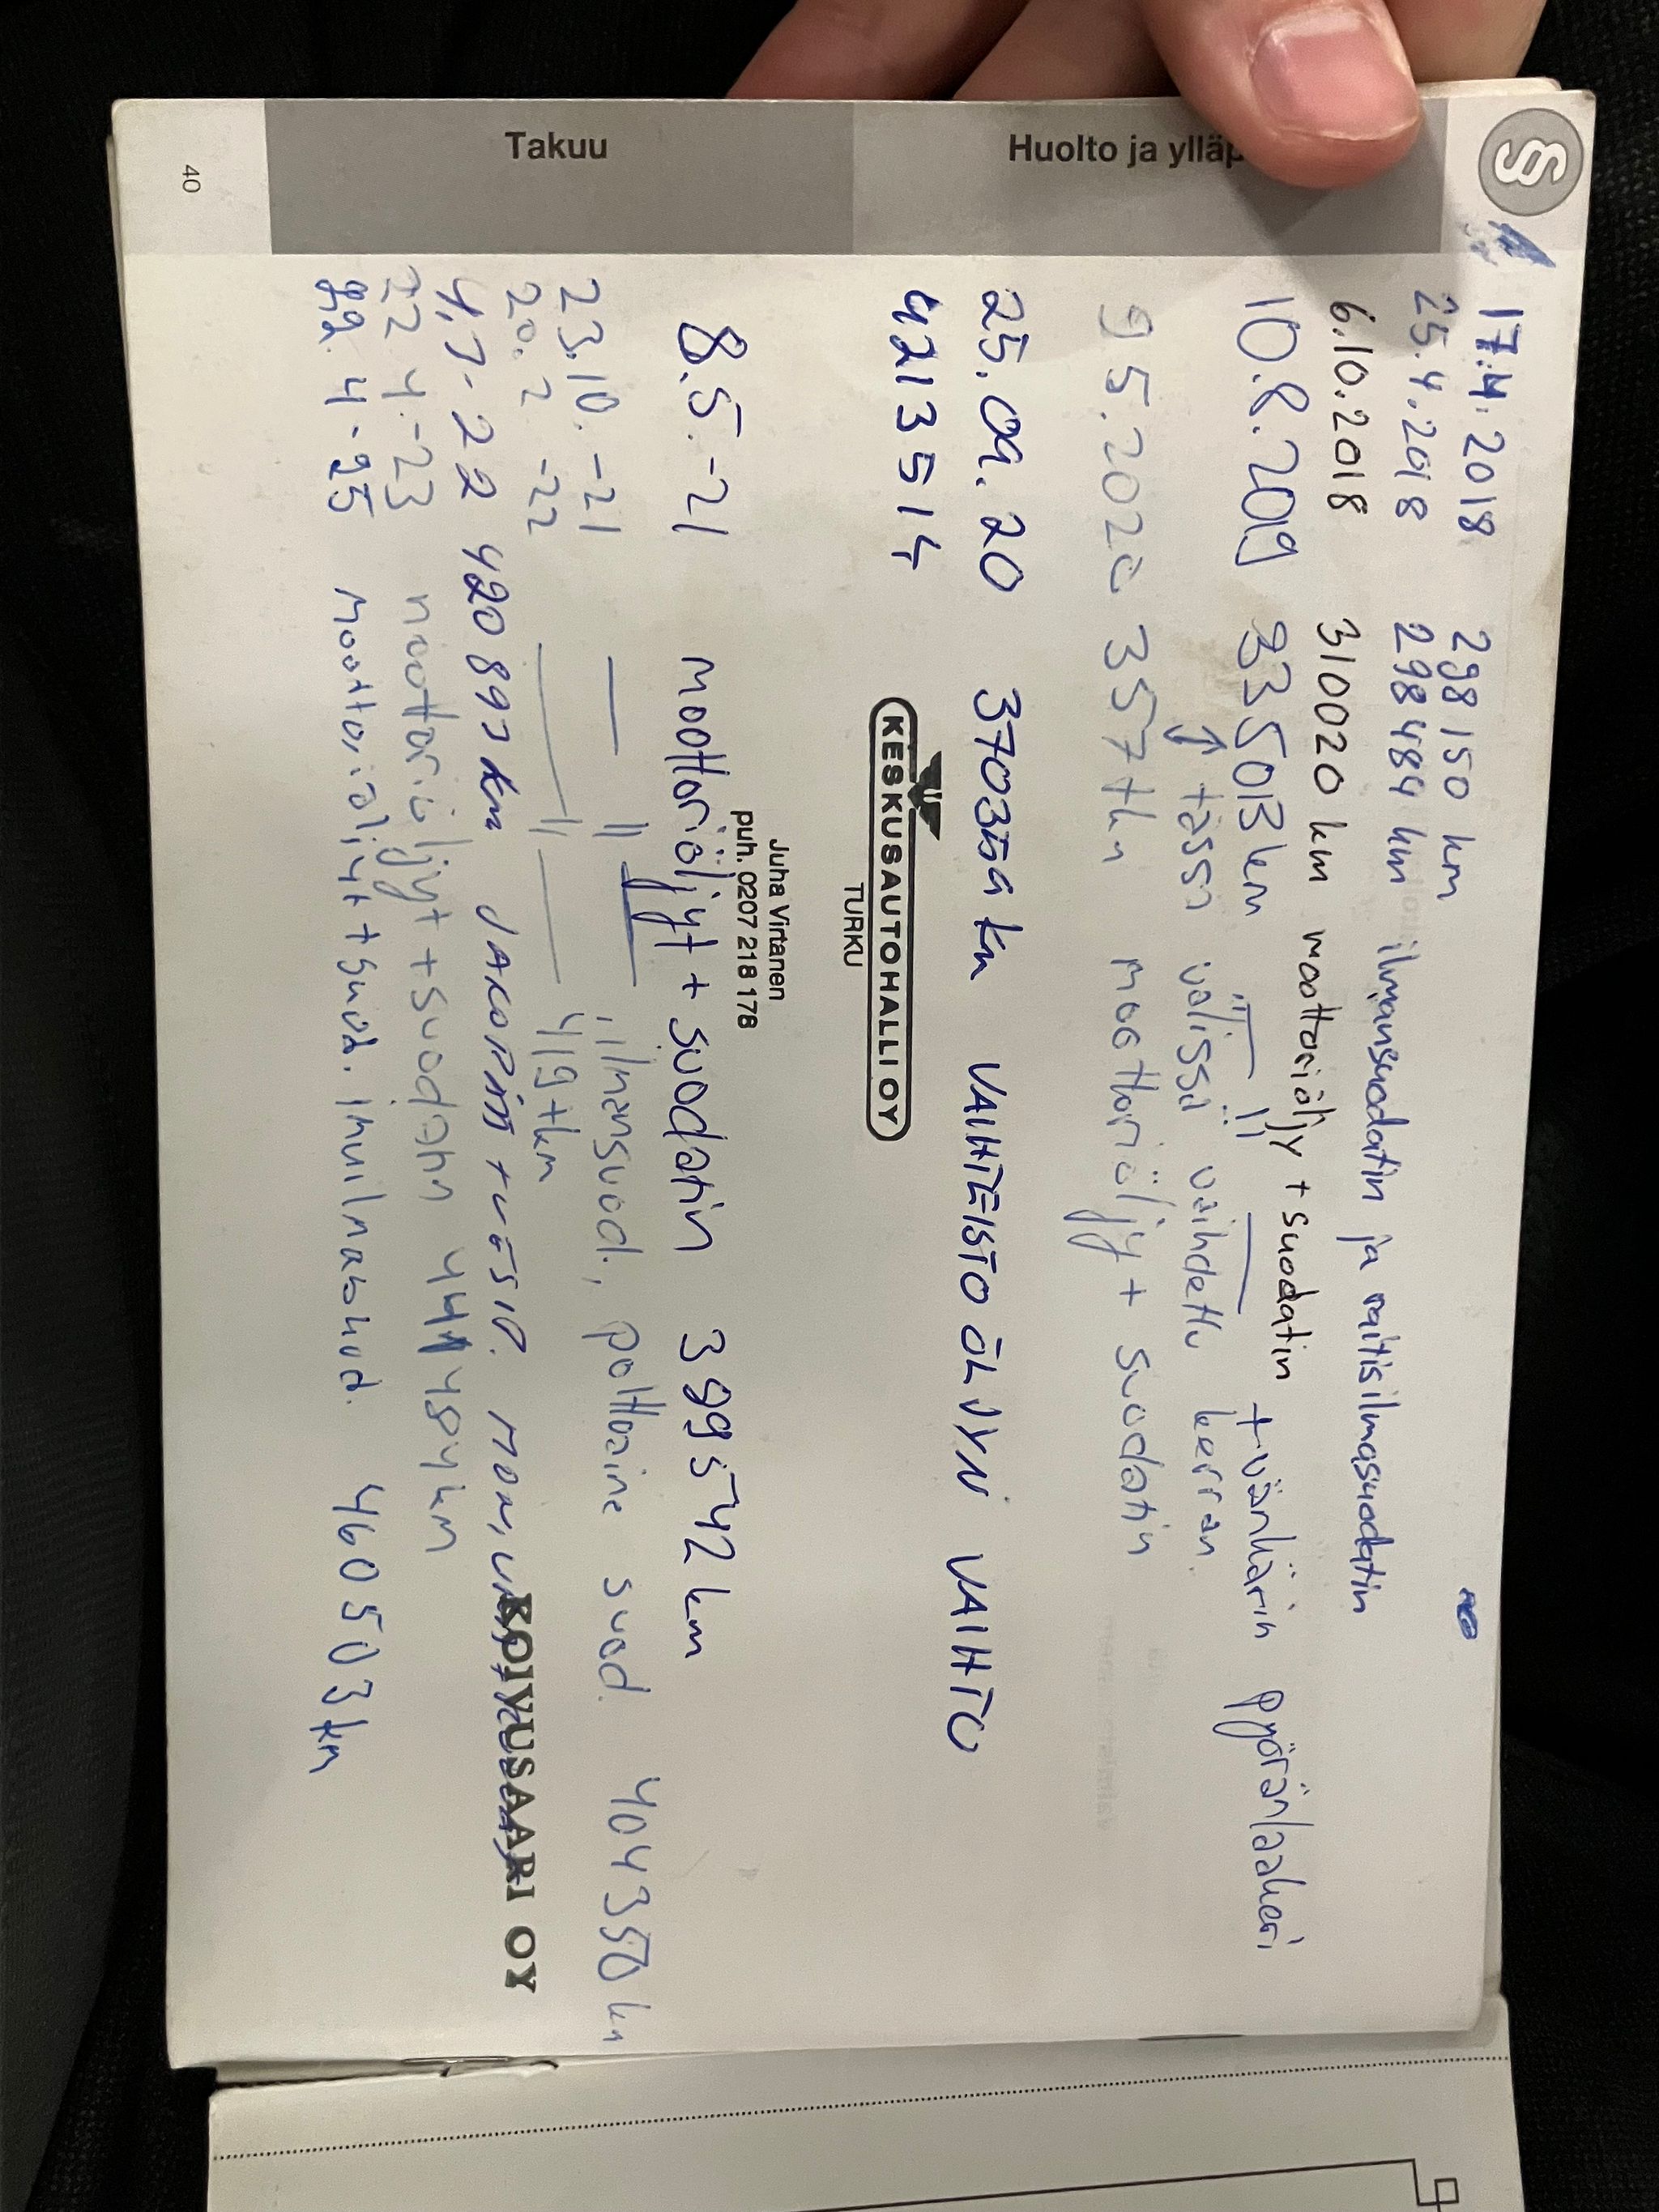 §
Huolto ja ylläp
Takuu
40
17.4.2018 298150 km
25.4.2018 298484 km ilmansuodatin ja raitisilmasuodatin
6.10.2018 310020 km moottoriöljy + suodatin
10.8.2019 335013 km –"– –"– + vänkärin pyöränlaakeri
↑ tässä välissä vaihdettu kerran.
9 5.2020 357tkm moottoriöljy + suodatin
25.09.20 370359 km VAIHTEISTO ÖLJYN VAIHTO
4213514
KESKUSAUTOHALLI OY
TURKU
Juha Virtanen
puh. 0207 218 178
8.5.-21 moottoriöljyt + suodatin 399542 km
23.10.-21 –"– , ilmansuod., polttoaine suod. 404350 km
20.2.-22 –"– 419tkm
4.7.22 420897 km JAKOPÄÄ + VESIP.
KOIVUSAARI OY
22.4.-23 moottoriöljyt + suodatin 441484 km
22.4.-25 moottoriöljyt + suod. 460503 km